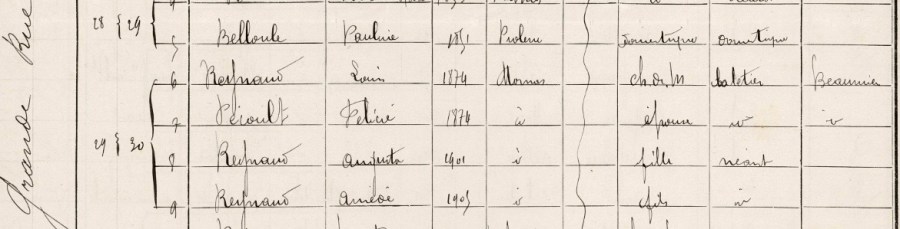 Grande Rue
28 { 29
5 Belloule Pauline 1851 domestique domestique
6 Reynaud Louis 1874 Mornas ch. de M Beaumier
29 { 30
7 Félicie 1874 id épouse id id
8 Reynaud Augusta 1901 id fille néant
9 Reynaud Amédé 1905 id fils id